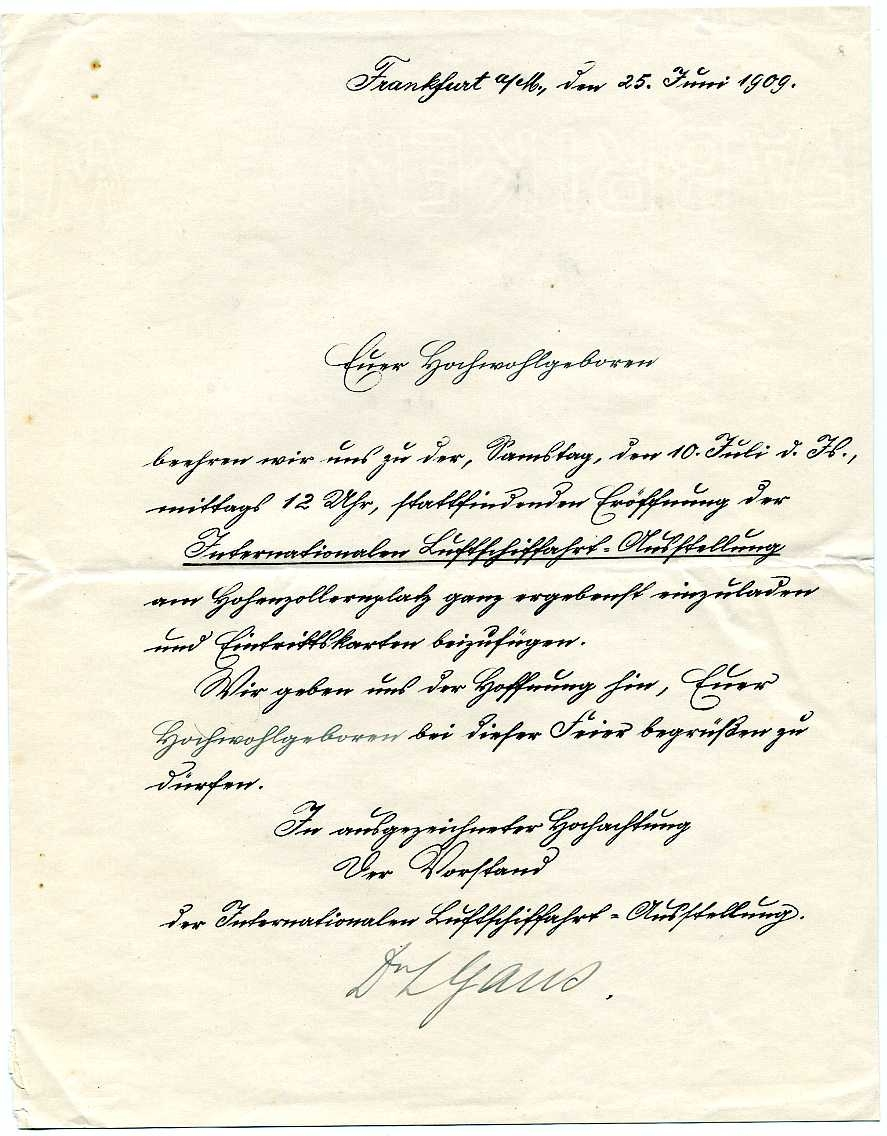 Frankfurt a/M., den 25. Juni 1909.
Euer Hochwohlgeboren
beehren wir uns zu der, Samstag, den 10. Juli d. Js.,
mittags 12 Uhr, stattfindenden Eröffnung der
Internationalen Luftschiffahrt-Ausstellung
am Hohenzollernplatz ganz ergebenst einzuladen
und Eintrittskarten beizufügen.
Wir geben uns der Hoffnung hin, Euer
Hochwohlgeboren bei dieser Feier begrüßen zu
dürfen.
In ausgezeichneter Hochachtung
Der Vorstand
der Internationalen Luftschiffahrt-Ausstellung.
Dr L Gans.